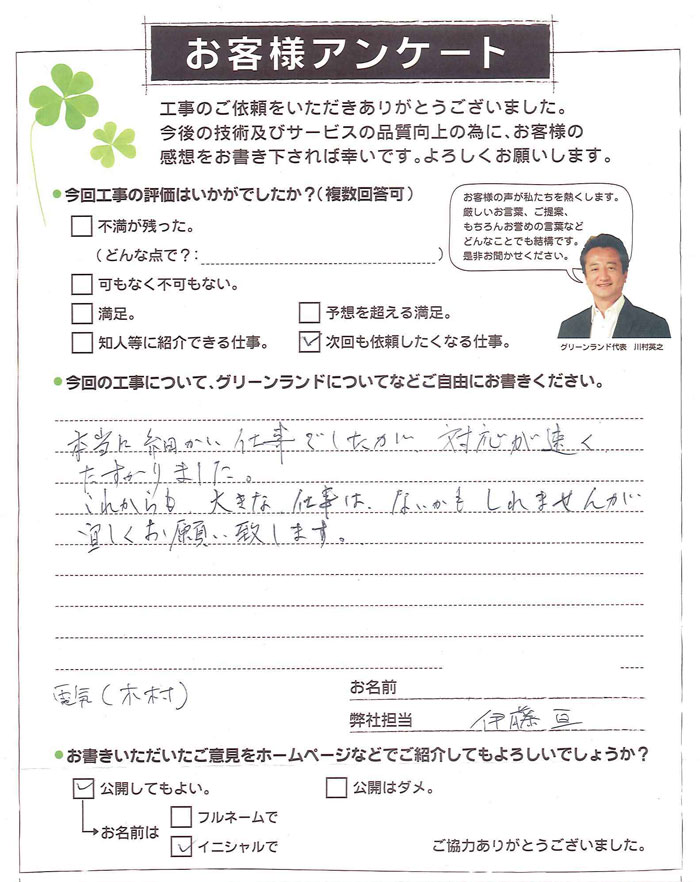 お客様アンケート
工事のご依頼をいただきありがとうございました。
今後の技術及びサービスの品質向上の為に、お客様の
感想をお書き下されば幸いです。よろしくお願いします。
今回工事の評価はいかがでしたか？（複数回答可）
不満が残った。
（どんな点で？：　　　）
可もなく不可もない。
満足。　予想を超える満足。
知人等に紹介できる仕事。　次回も依頼したくなる仕事。
お客様の声が私たちを熱くします。
厳しいお言葉、ご提案、
もちろんお誉めの言葉など
どんなことでも結構です。
是非お聞かせください。
グリーンランド代表　川村英之
今回の工事について、グリーンランドについてなどご自由にお書きください。
本当に細かい仕事でしたが、対応が速く
たすかりました。
これからも、大きな仕事は、ないかもしれませんが
宜しくお願い致します。
電気（木村）
お名前
弊社担当　伊藤亘
お書きいただいたご意見をホームページなどでご紹介してもよろしいでしょうか？
公開してもよい。　公開はダメ。
お名前は　フルネームで
イニシャルで
ご協力ありがとうございました。